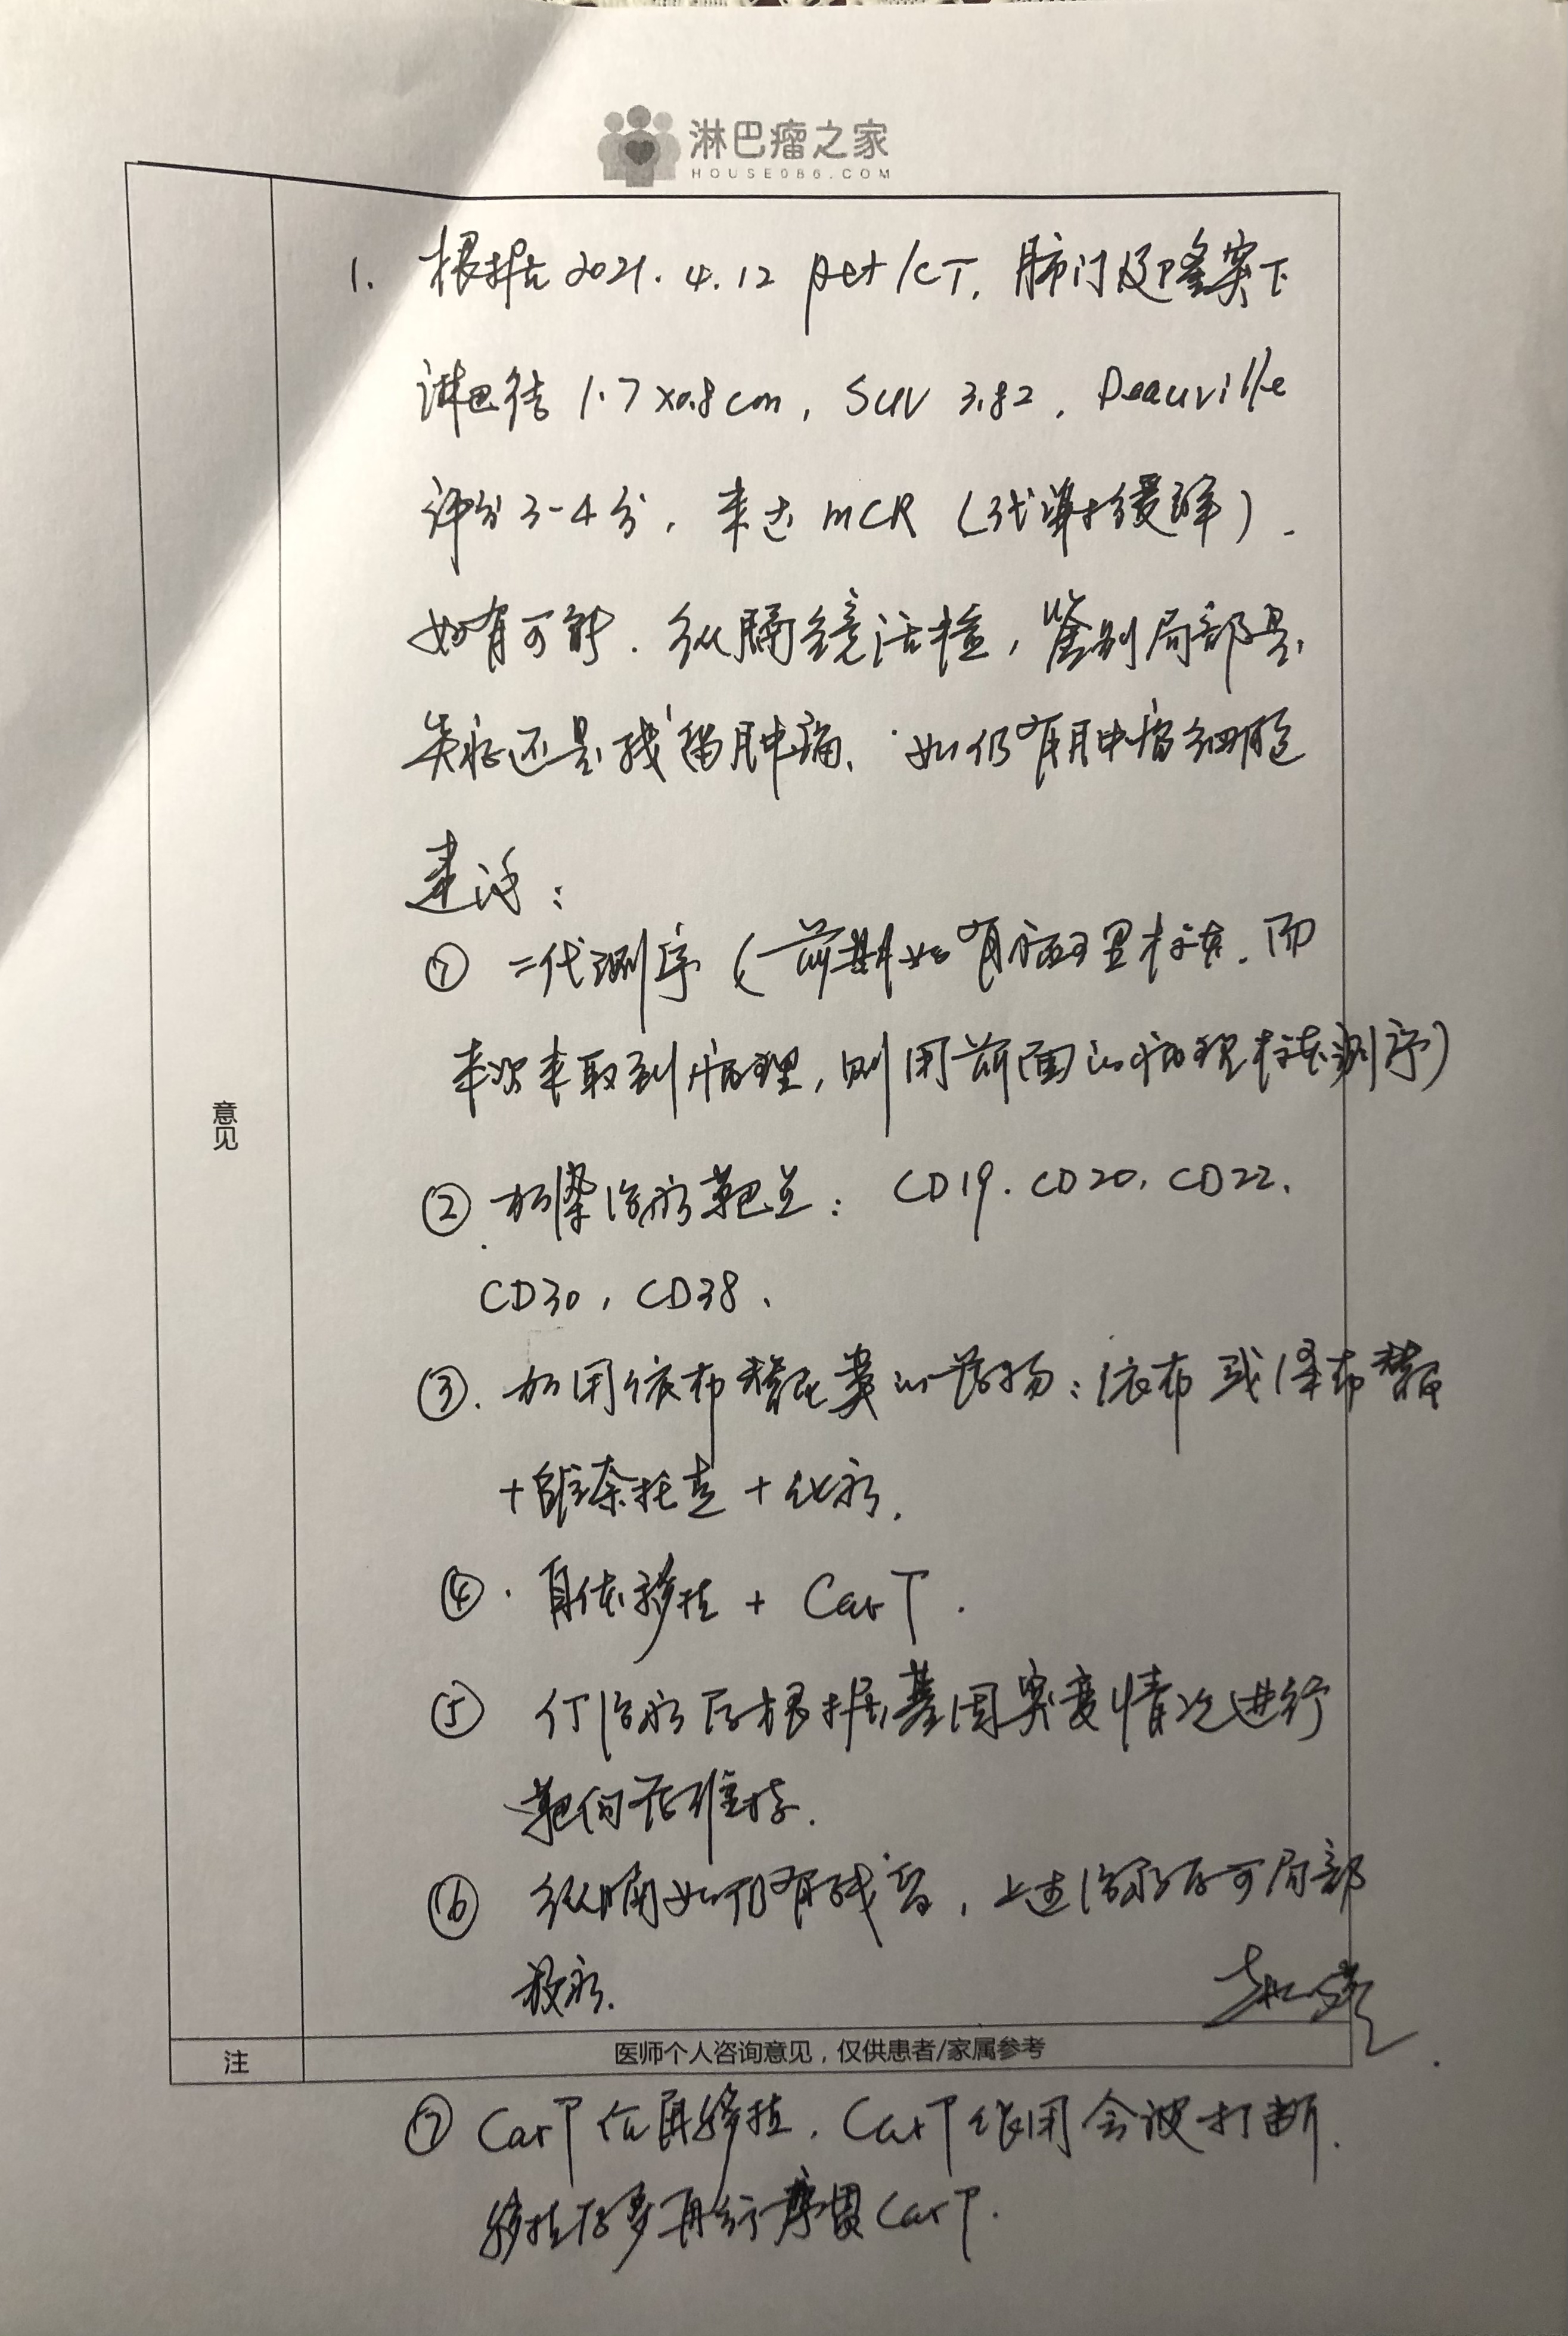 淋巴瘤之家
HOUSE086.COM
1. 根据2021.4.12 pet/CT, 肺门及隆突下
淋巴结1.7x0.8cm, SUV 3.82, Deauville
评分3-4分, 未达mCR (代谢缓解).
如有可能. 纵膈镜活检, 鉴别局部是
炎症还是残留肿瘤、如仍有肿瘤细胞
建议:
① 二代测序 (前期如有病理标本. 而
本次未取到病理, 则用前面的病理标本测序)
② 加染治疗靶点: CD19. CD20, CD22,
CD30, CD38、
③. 加用依布替尼类的药物: 依布或泽布替尼
+维奈托克+化疗.
④. 自体移植 + CarT.
⑤ 行治疗后根据基因突变情况进行
靶向药维持.
⑥ 纵膈如仍有残留, 上述治疗后可局部
放疗.
意见
注
医师个人咨询意见，仅供患者/家属参考
⑦ CarT后再移植, CarT作用会被打断.
移植后要再行序贯CarT.